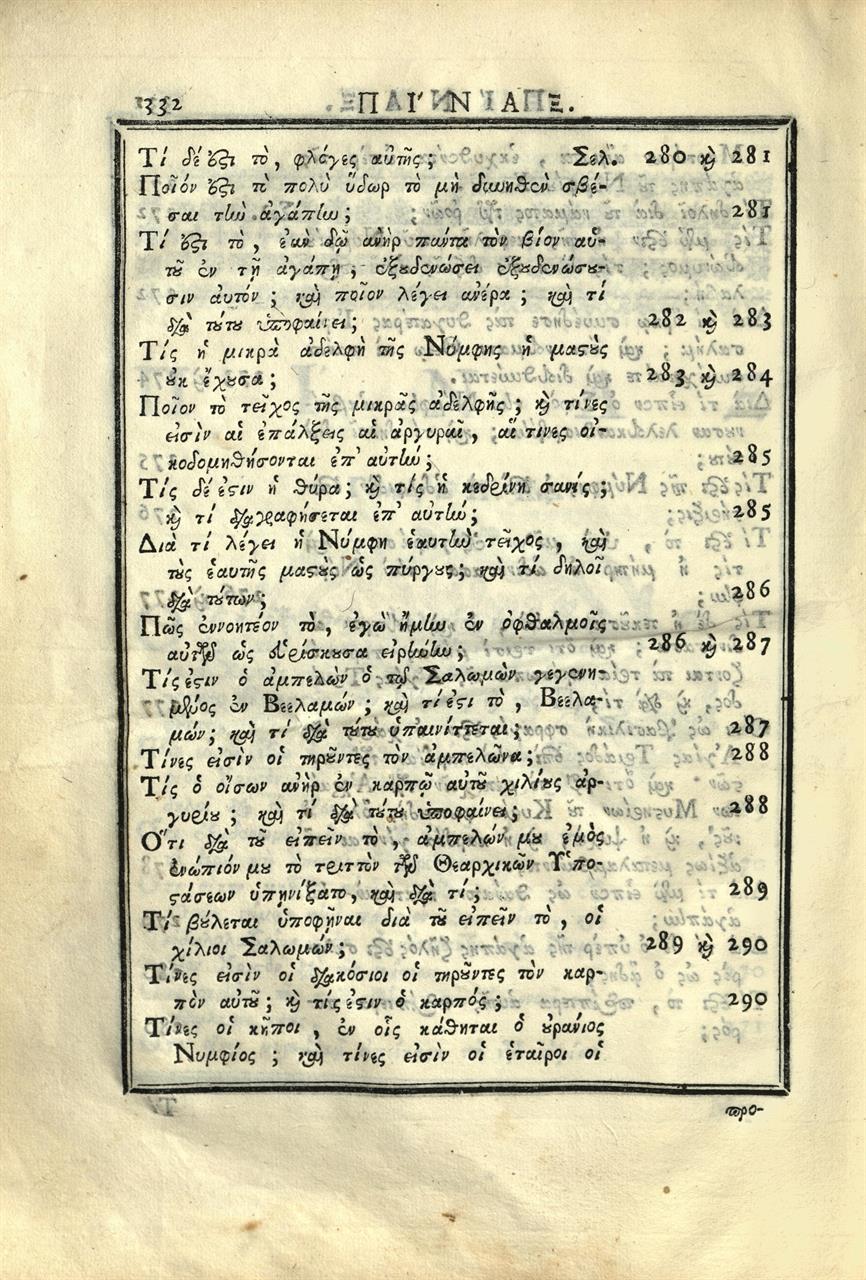 332 ΠΙ´ΝΑΞ.
Τί δέ ἐςι τὸ, φλόγες αὐτῆς; Σελ. 280 κὶ 281
Ποῖόν ἐςι τὸ πολὺ ὕδωρ τὸ μὴ δυνηθὲν σβέ-
σαι τὴν ἀγάπην; 281
Τί ἐςι τὸ, ἐὰν δῷ ἀνὴρ πάντα τὸν βίον αὑ-
τοῦ ἐν τῇ ἀγάπῃ, ἐξουδενώσει ἐξουδενώσου-
σιν αὐτόν; καὶ ποῖον λέγει ἀνέρα; καὶ τί
διὰ τούτου ὑποφαίνει; 282 κὶ 283
Τίς ἡ μικρὰ ἀδελφὴ τῆς Νύμφης ἡ μαςοὺς
οὐκ ἔχουσα; 283 κὶ 284
Ποῖον τὸ τεῖχος τῆς μικρᾶς ἀδελφῆς; κὶ τίνες
εἰσὶν αἱ ἐπάλξεις αἱ ἀργυραῖ, αἵ τινες οἰ-
κοδομηθήσονται ἐπ' αὐτήν; 285
Τίς δέ ἐςιν ἡ θύρα; κὶ τίς ἡ κεδρίνη σανίς;
κὶ τί διαγραφήσεται ἐπ' αὐτήν; 285
Διὰ τί λέγει ἡ Νύμφη ἑαυτὴν τεῖχος, καὶ
τοὺς ἑαυτῆς μαςοὺς ὡς πύργους; καὶ τί δηλοῖ
διὰ τούτων; 286
Πῶς ἐννοητέον τὸ, ἐγὼ ἤμην ἐν ὀφθαλμοῖς
αὐτῶν ὡς εὑρίσκουσα εἰρήνην; 286 κὶ 287
Τίς ἐςιν ὁ ἀμπελὼν ὁ τῷ Σαλωμὼν γεγενη-
μένος ἐν Βεελαμών; καὶ τί ἐςι τὸ, Βεελα-
μών; καὶ τί διὰ τούτου ὑπαινίττεται; 287
Τίνες εἰσὶν οἱ τηροῦντες τὸν ἀμπελῶνα; 288
Τίς ὁ οἴσων ἀνὴρ ἐν καρπῷ αὐτοῦ χιλίους ἀρ-
γυρίου; καὶ τί διὰ τούτου ὑποφαίνει; 288
Ὅτι διὰ τοῦ εἰπεῖν τὸ, ἀμπελών μου ἐμὸς
ἐνώπιόν μου τὸ τριττὸν τῶν Θεαρχικῶν Ὑπο-
ςάσεων ὑπῃνίξατο, καὶ διὰ τί; 289
Τί βούλεται ὑποφῆναι διὰ τοῦ εἰπεῖν τὸ, οἱ
χίλιοι Σαλωμών; 289 κὶ 290
Τίνες εἰσὶν οἱ διακόσιοι οἱ τηροῦντες τὸν καρ-
πὸν αὐτοῦ; κὶ τίς ἐςιν ὁ καρπός; 290
Τίνες οἱ κῆποι, ἐν οἷς κάθηται ὁ οὐράνιος
Νυμφίος; καὶ τίνες εἰσὶν οἱ ἑταῖροι οἱ
προ-